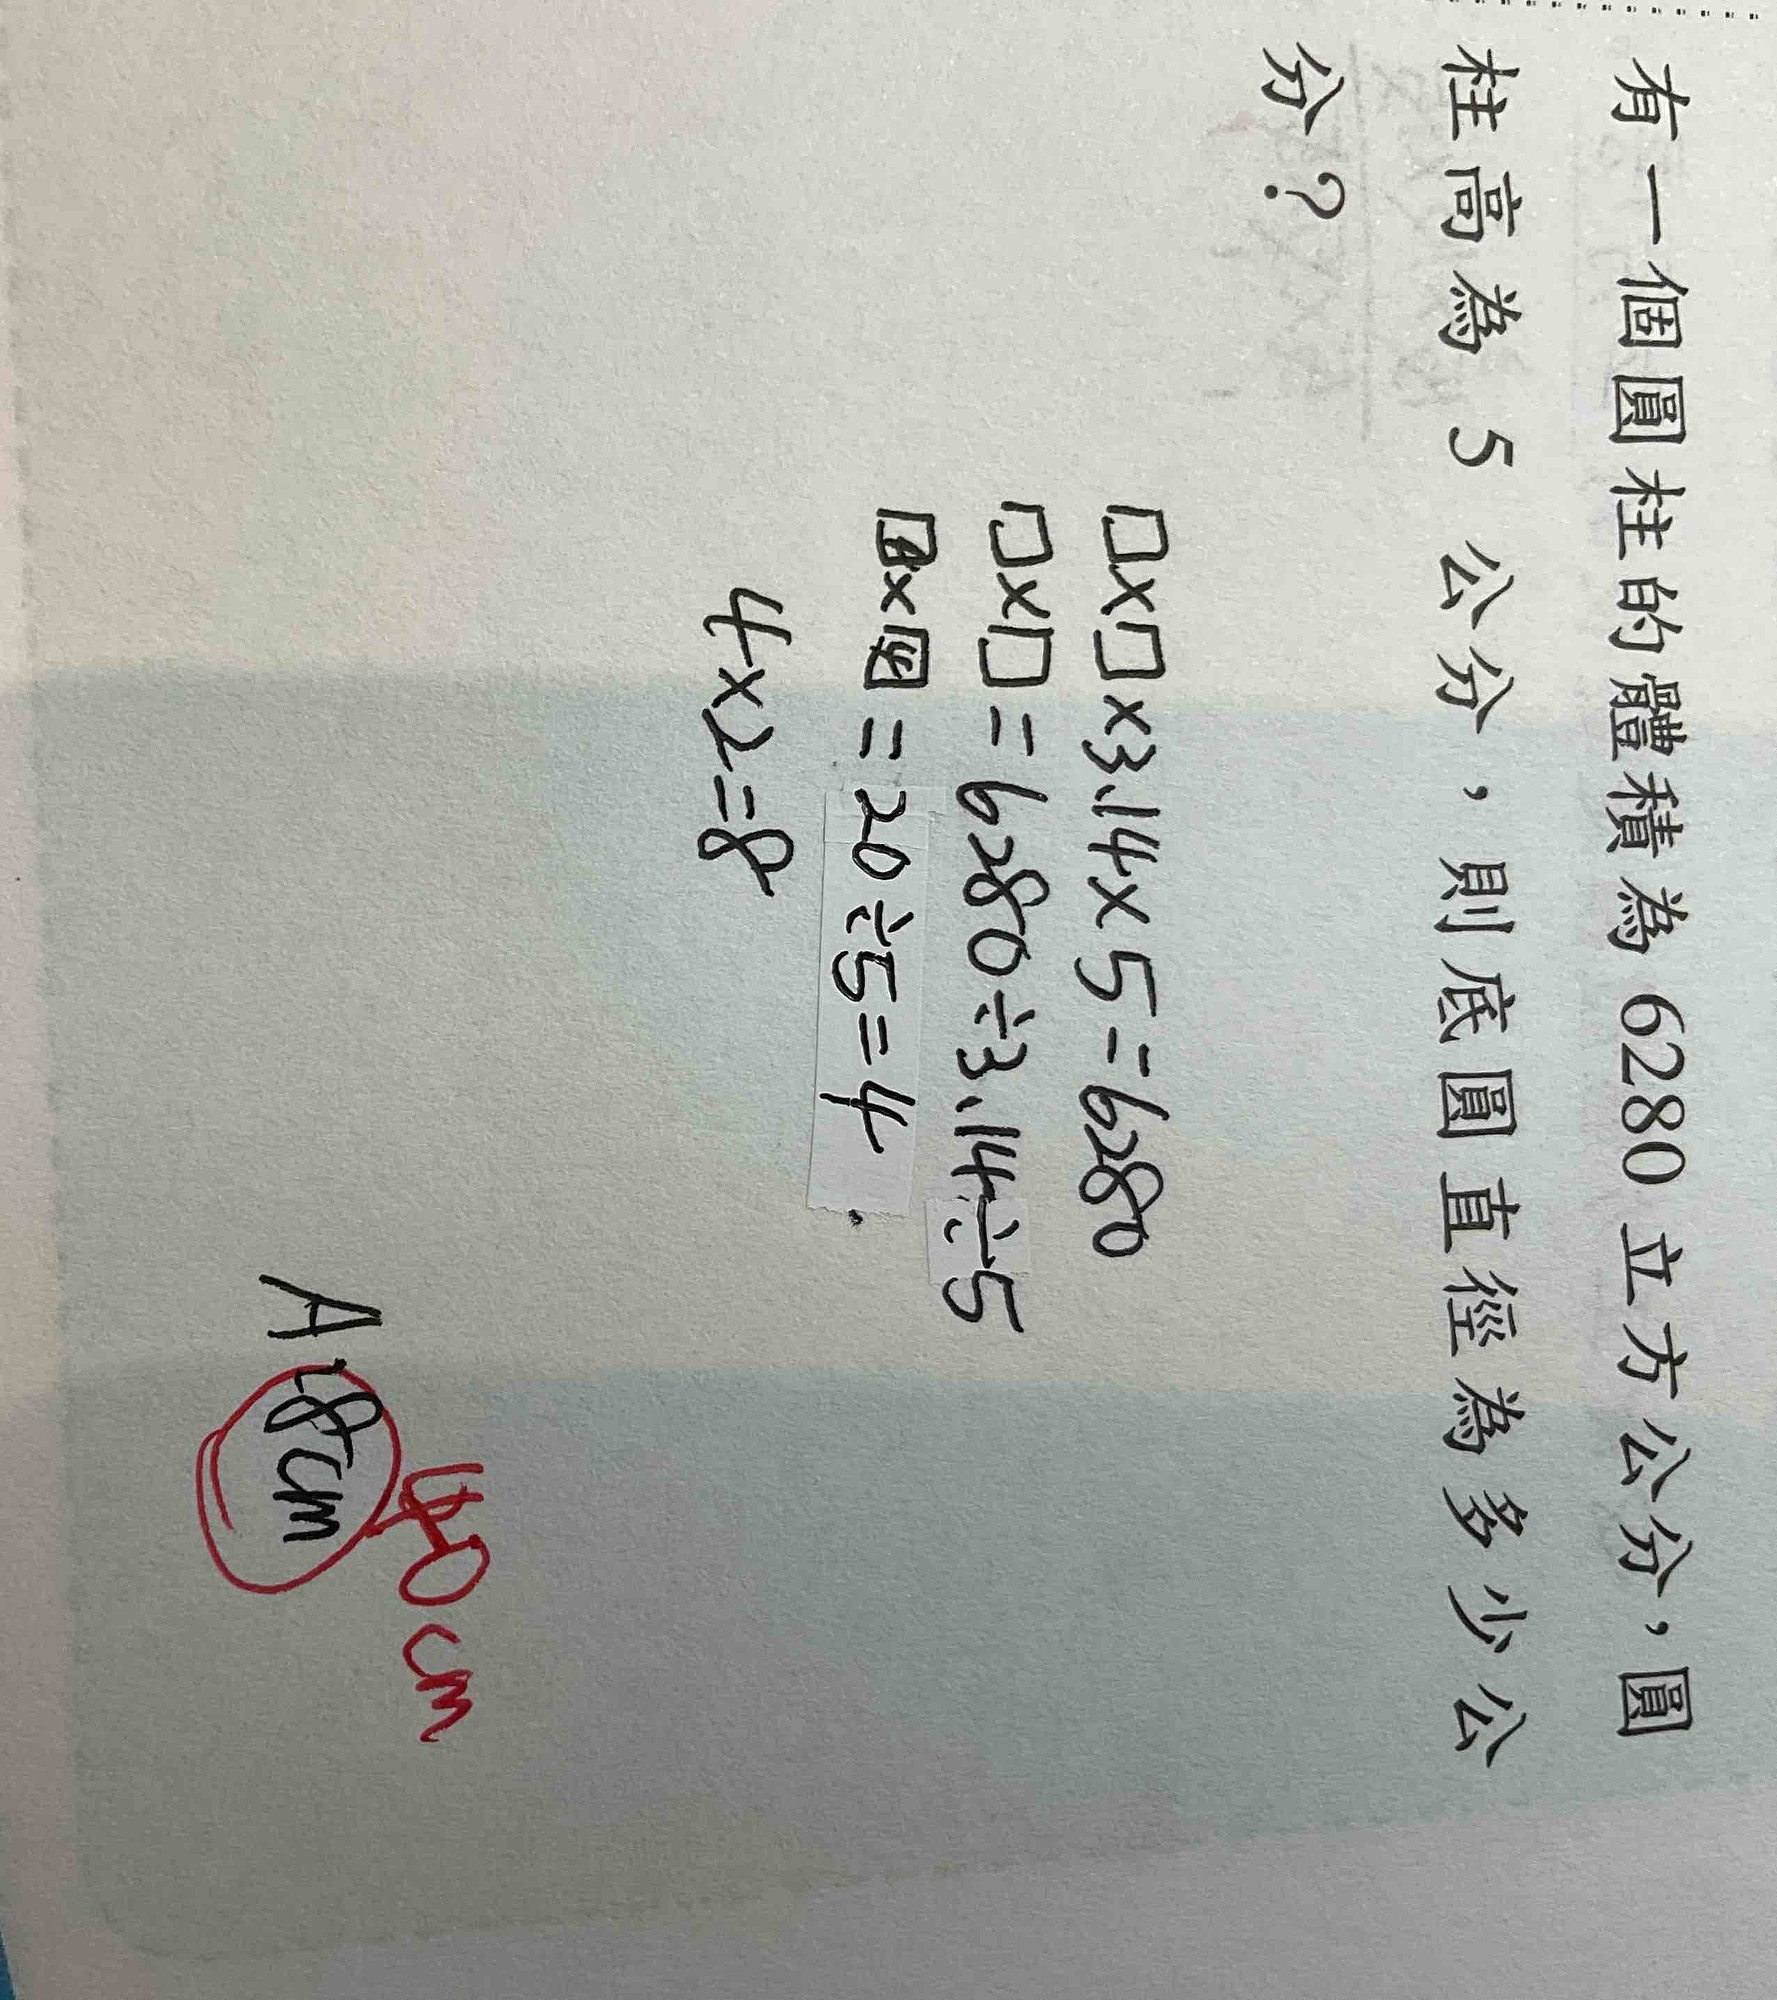 有一個圓柱的體積為 6280 立方公分，圓
柱高為 5 公分，則底圓直徑為多少公
分？
□×□×3.14×5=6280
□×□=6280÷3.14÷5
×=20÷5=4
4×2=8
A:8cm
40cm